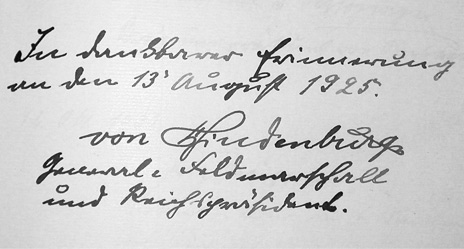 In dankbarer Erinnerung
an den 13' August 1925.
von Hindenburg
General-Feldmarschall
und Reichspräsident.